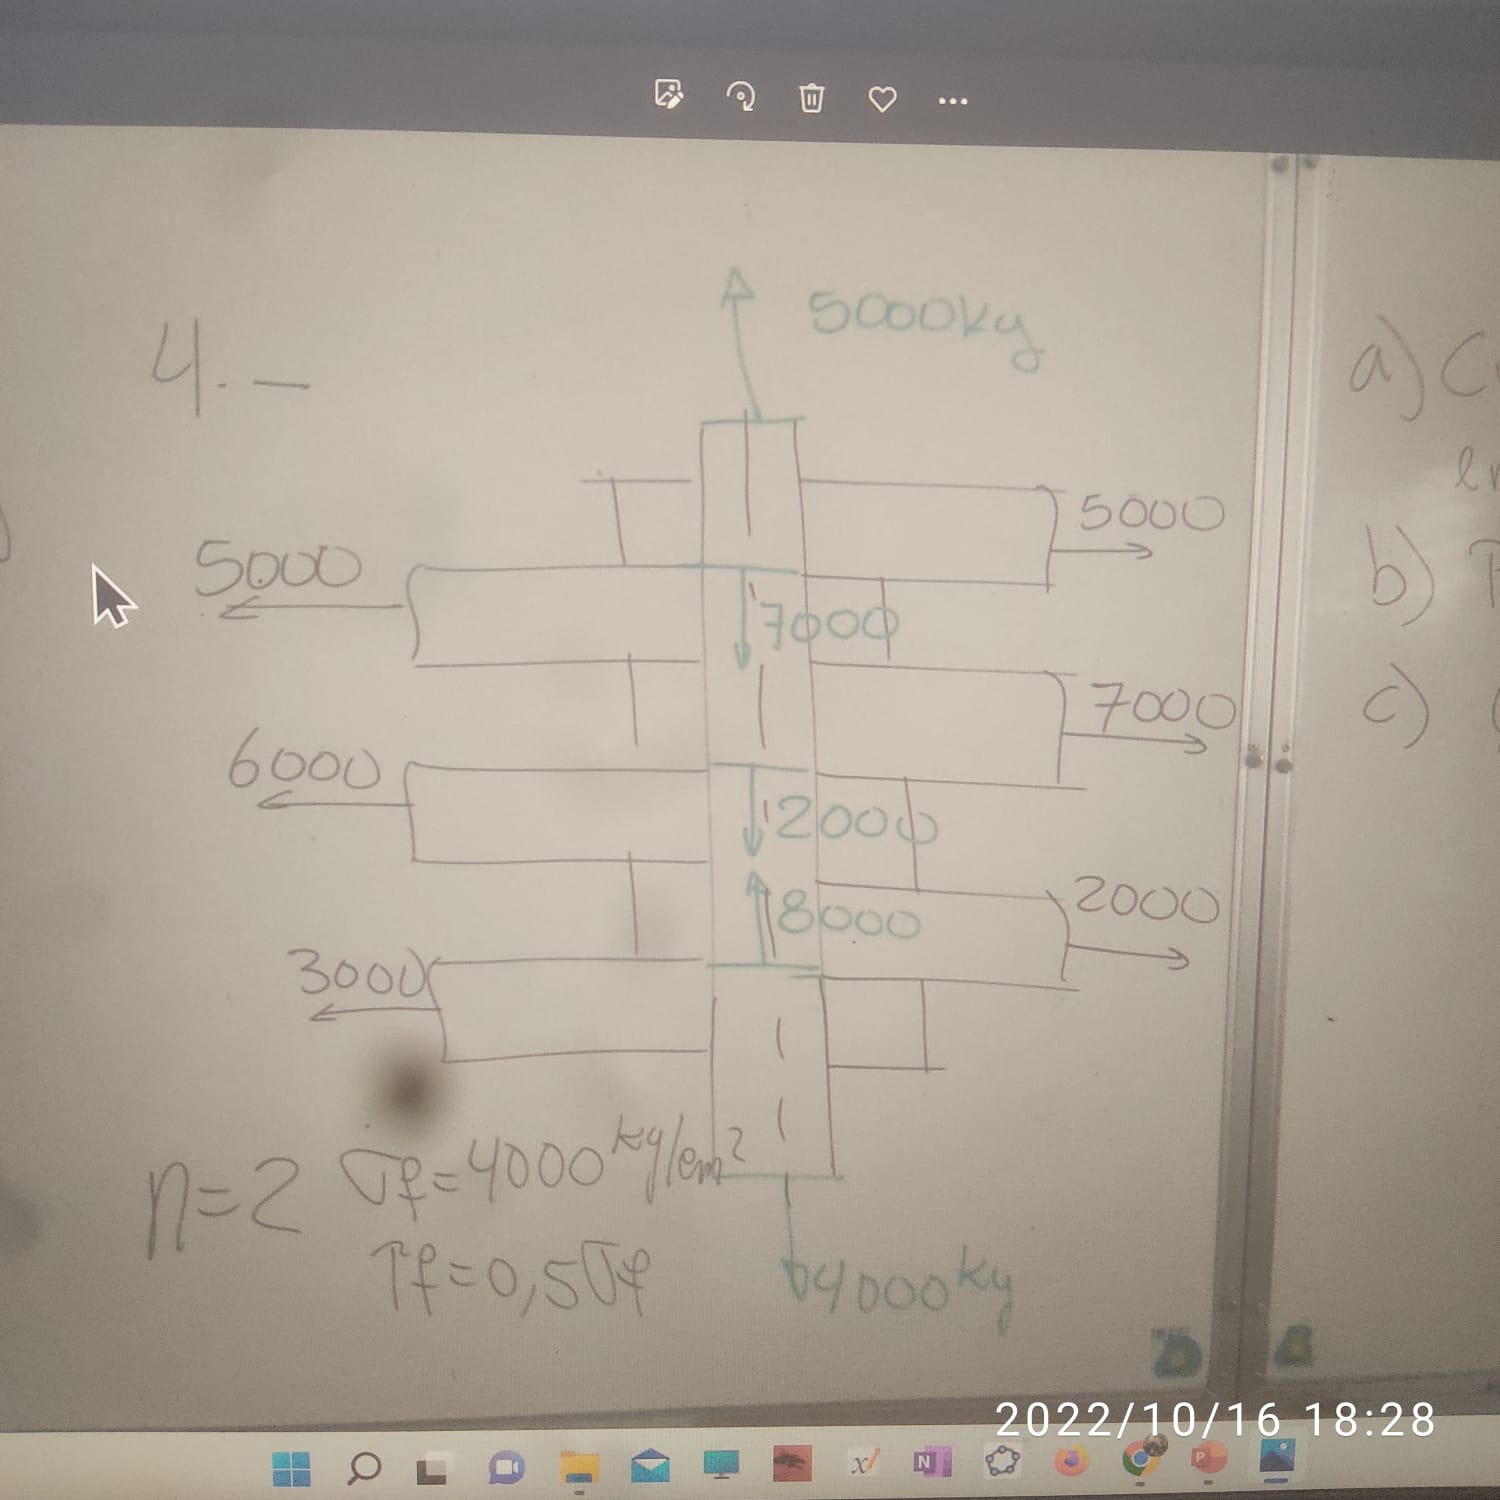 4.-
5000kg
a) C
5000
5000
b)
7000
7000
c)
6000
2000
2000
8000
3000
n=2 σf=4000 kg/cm²
τf=0,5σf
4000kg
2022/10/16 18:28